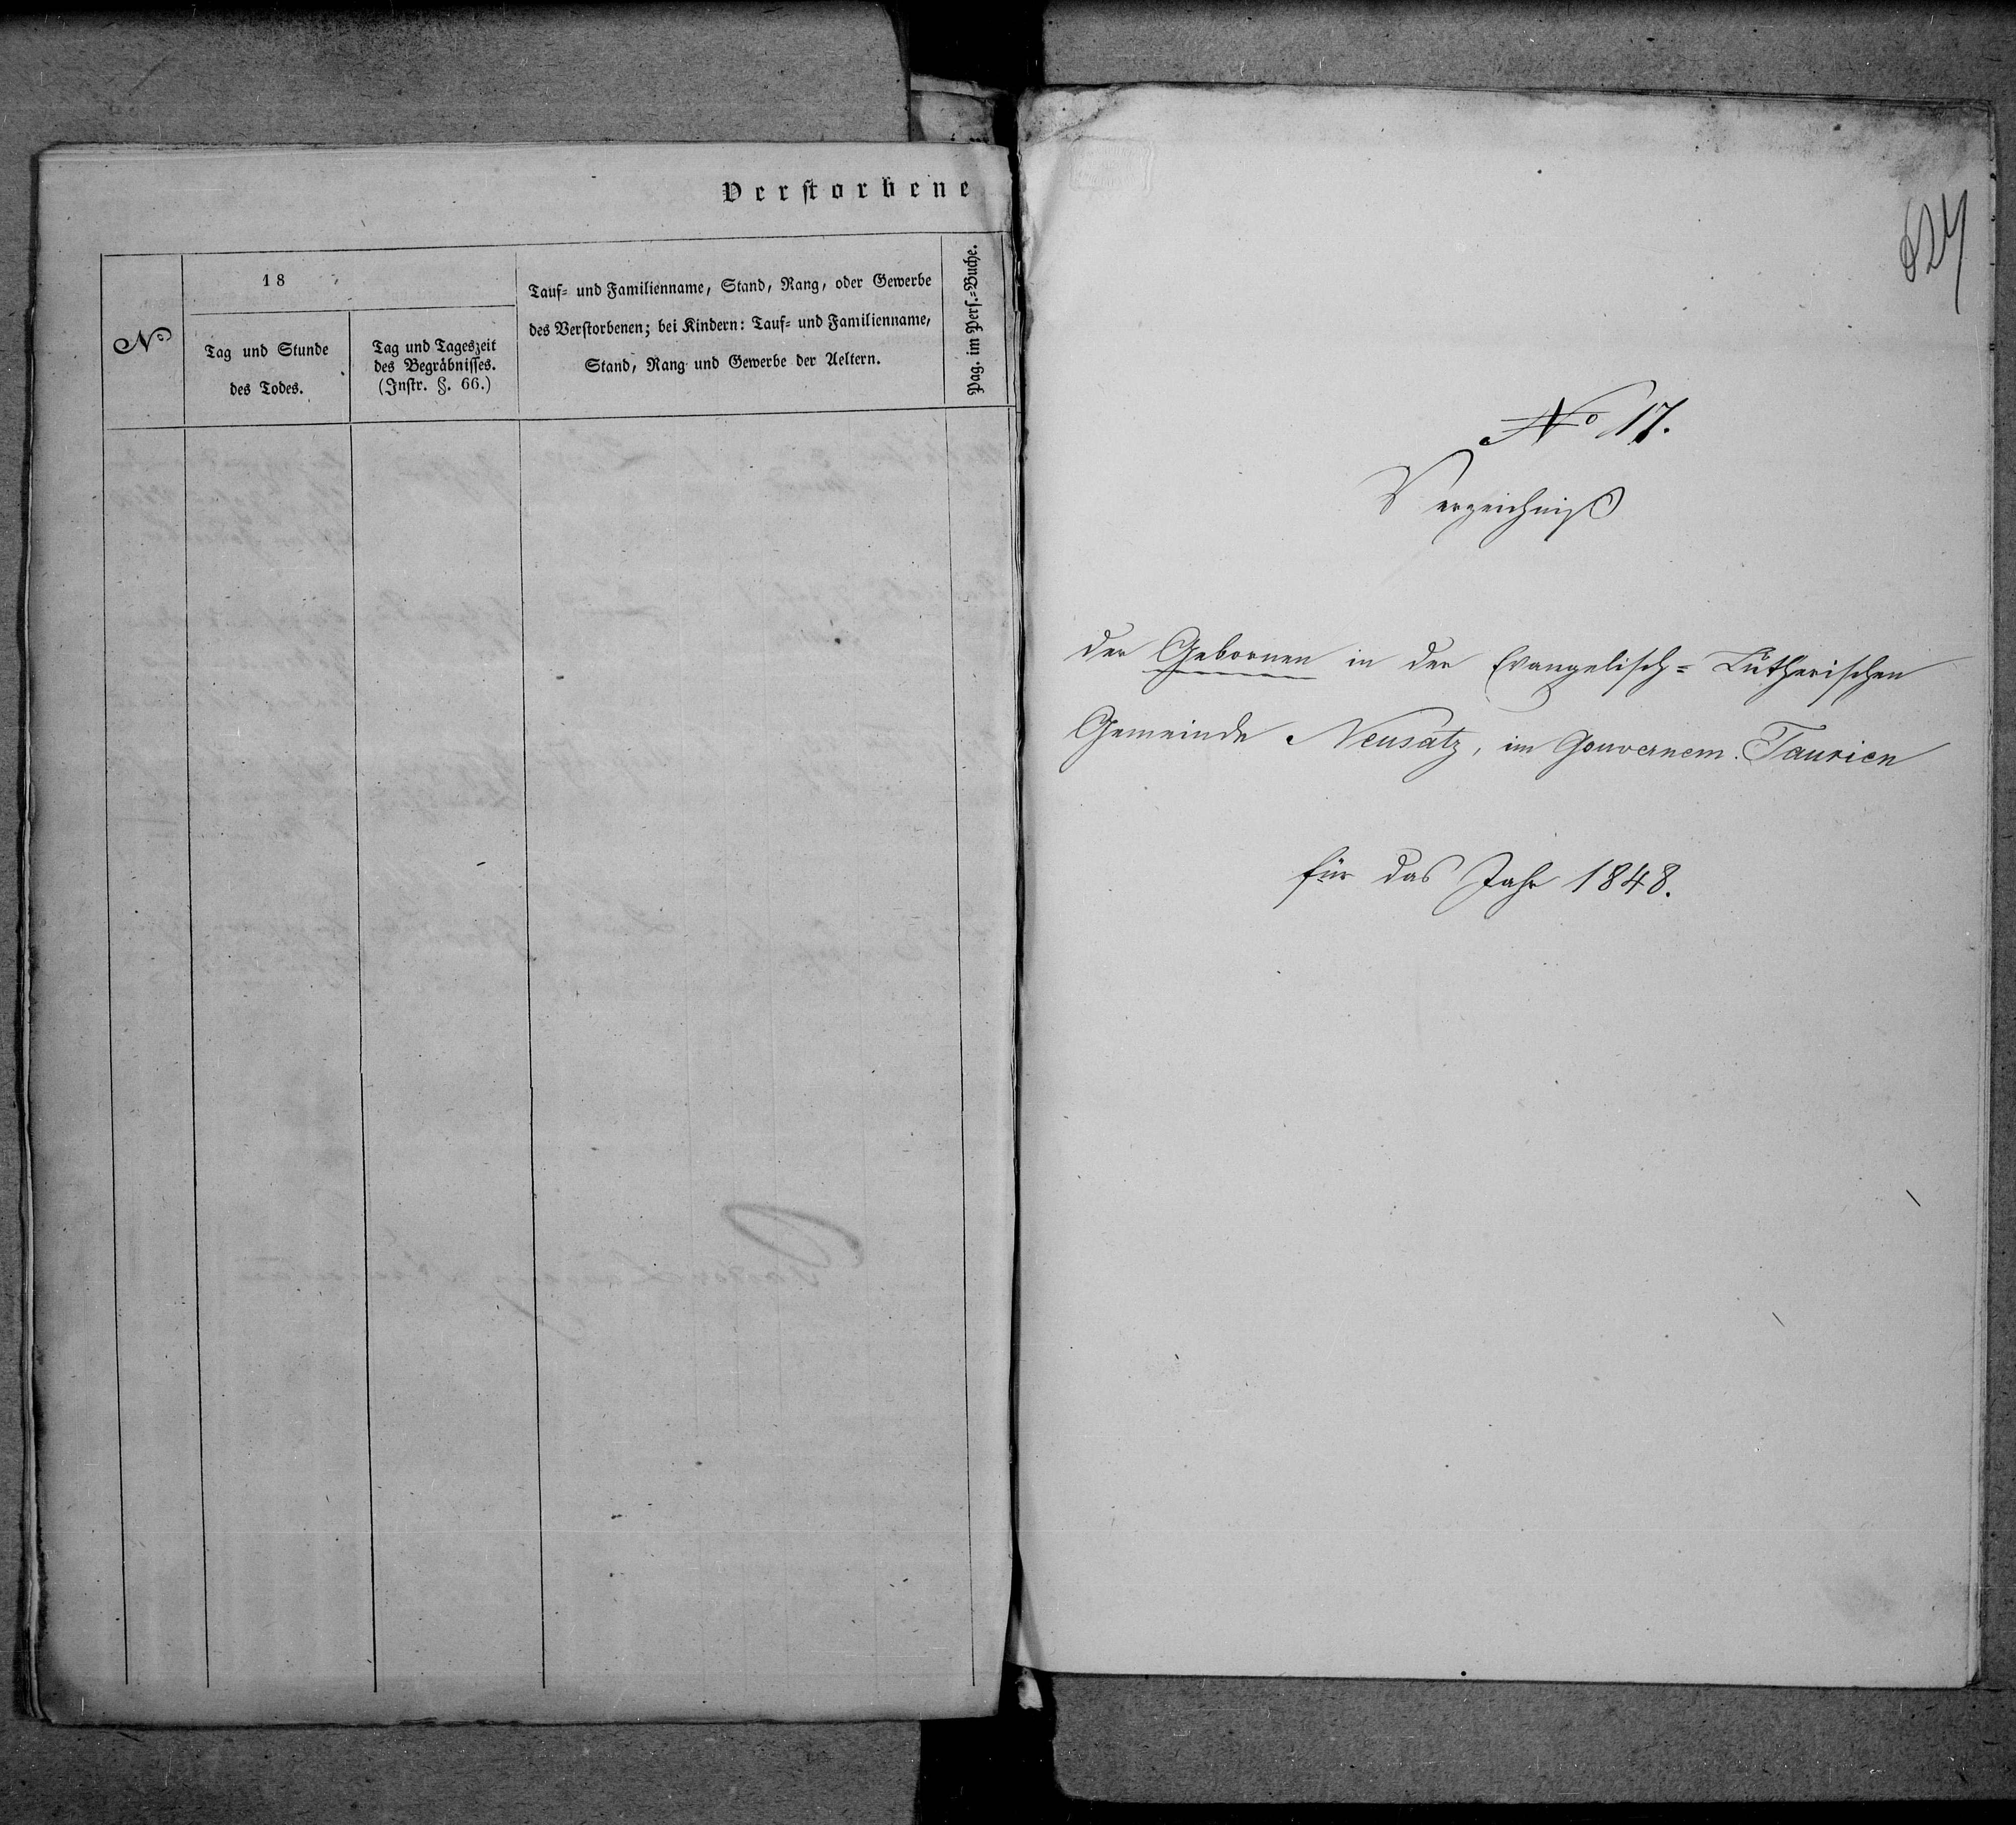 Verstorbene
No
18
Tag und Stunde
des Todes.
Tag und Tageszeit
des Begräbnisses.
(Instr. §. 66.)
Tauf= und Familienname, Stand, Rang, oder Gewerbe
des Verstorbenen; bei Kindern: Tauf= und Familienname,
Stand, Rang und Gewerbe der Aeltern.
Pag. im Pers.=Buche.
No 17.
Verzeichniß
der Gebornen in der Evangelisch= Lutherischen
Gemeinde Neusatz, im Gouvernem. Taurien
für das Jahr 1848.